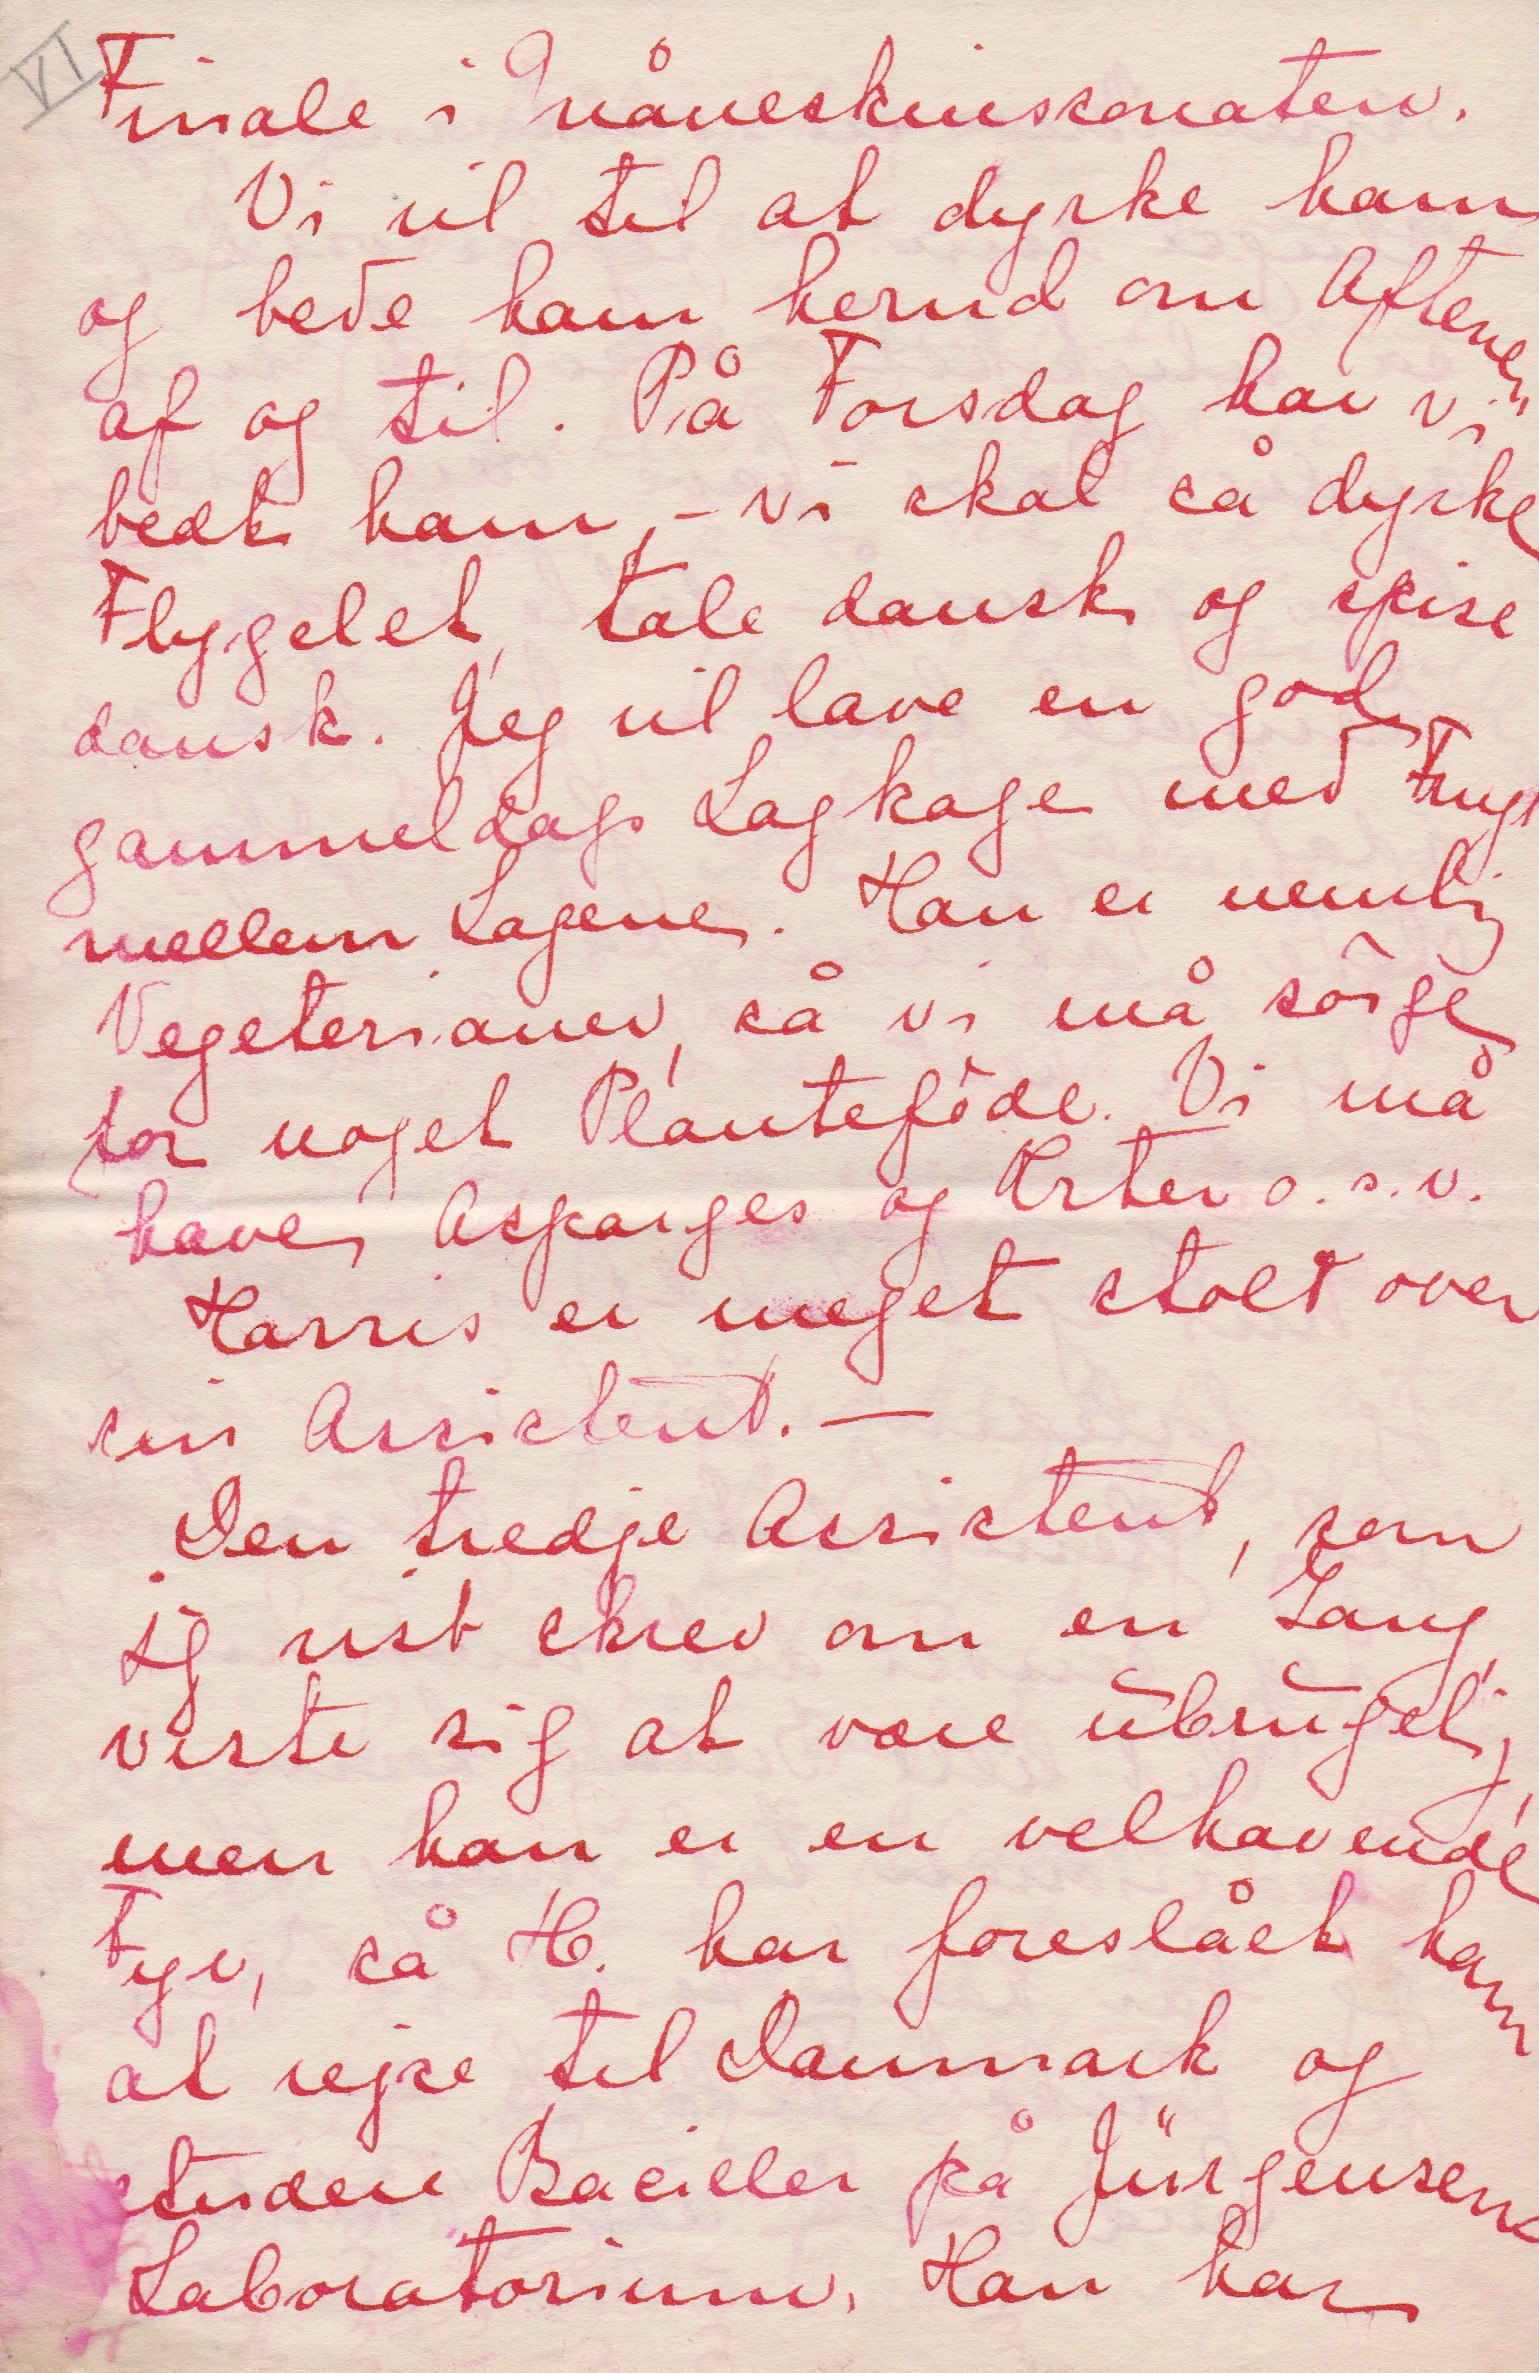 VI
Finale i Måneskinssonaten.
Vi vil til at dyrke ham
og bede ham herud om Aftenen
af og til. På Torsdag har vi
bedt ham, – vi skal så dyrke
Flygelet, tale dansk og spise
dansk. Jeg vil lave en god
gammeldags Lagkage med Frugt
mellem Lagene. Han er nemlig
Vegeterianer, så vi må sörge
for noget Planteföde. Vi må
have Asparges og Ærter o.s.v.
Harris er meget stolt over
sin Assistent. —
Den tredje Assistent, som
jeg vist skrev om en Gang,
viste sig at være ubrugelig,
men han er en velhavende
Fyr, så H. har foreslået ham
at rejse til Danmark og
studere Baciller på Jürgensens
Laboratorium. Han har